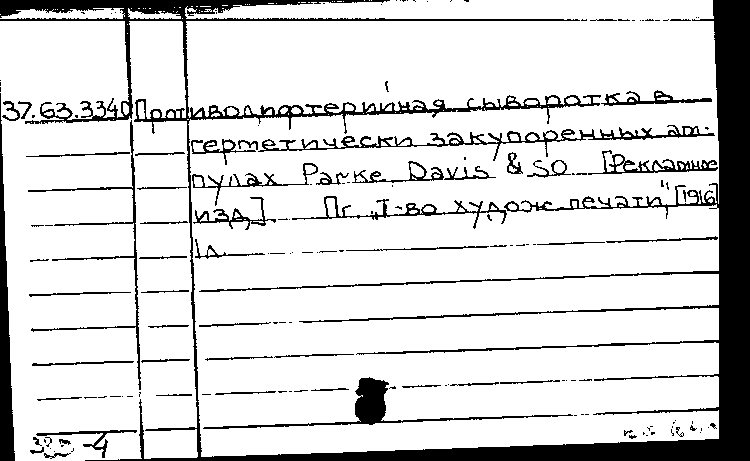 37.63.3340 Противодифтерийная сыворотка в
герметически закупоренных ам-
пулах Parke Davis & So [Рекламное
изд.]. Пг. „Т-во худож. печати", [1916]
1 л.